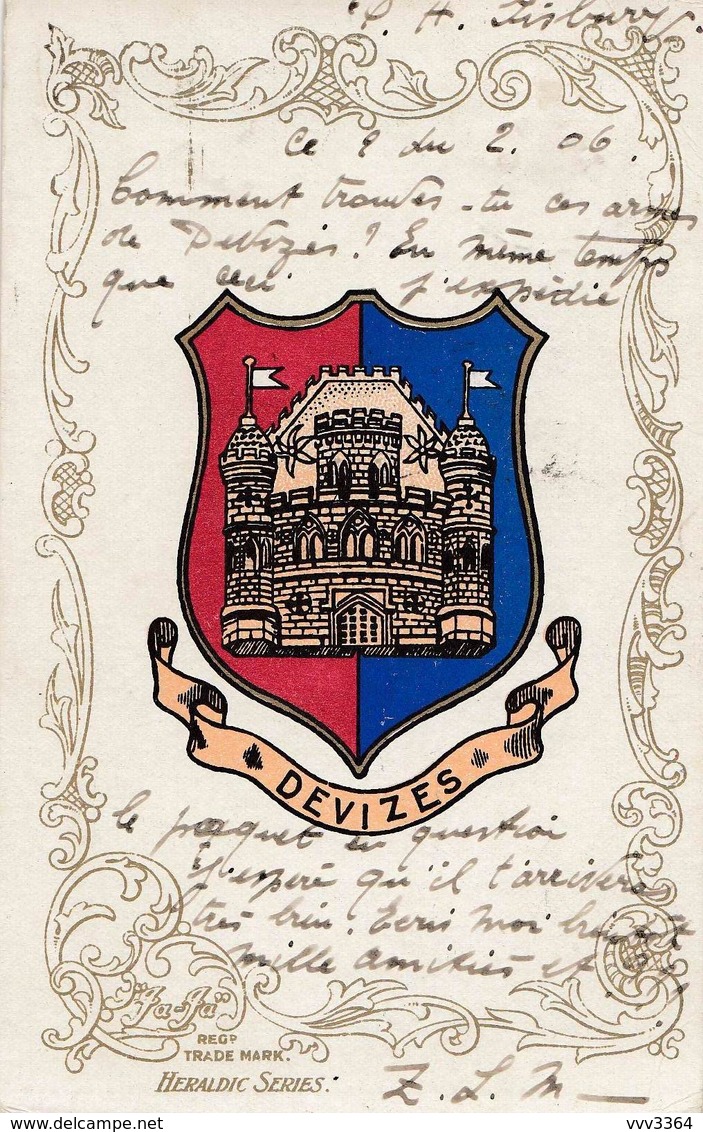 H. Tisbury.
Ce 9 du 2. 06.
Comment trouves-tu ces armes
de Devizes? En même temps
que ceci j'expédie
DEVIZES
le paquet en question
J'espère qu'il t'arrivera
très bien. Ecris moi
Mille amitiés et
"Ja-Ja"
REGD
TRADE MARK.
HERALDIC SERIES.
Z. L. M —
vvv3364